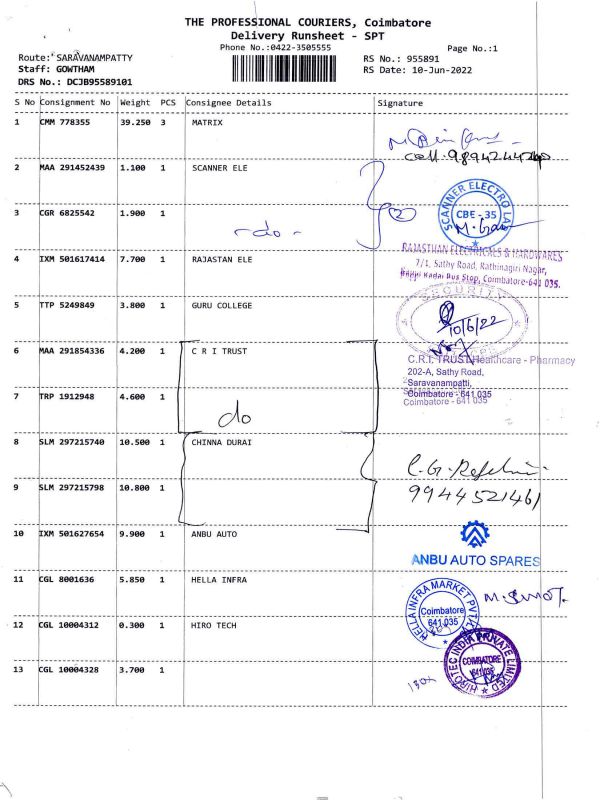 THE PROFESSIONAL COURIERS, Coimbatore
Delivery Runsheet - SPT
Phone No.:0422-3505555
Page No.:1
Route: SARAVANAMPATTY
RS No.: 955891
Staff: GOWTHAM
RS Date: 10-Jun-2022
DRS No.: DCJB95589101
S No Consignment No Weight PCS Consignee Details Signature
1 CMM 778355 39.250 3 MATRIX
2 MAA 291452439 1.100 1 SCANNER ELE
3 CGR 6825542 1.900 1
-do-
2
SCANNER ELECTRO LAB
CBE-35
4 IXM 501617414 7.700 1 RAJASTAN ELE
RAJASTHAN ELECTRICALS & HARDWARES
7/1, Sathy Road, Rathinagiri Nagar,
Kadai Bus Stop, Coimbatore-641 035.
5 TTP 5249849 3.800 1 GURU COLLEGE
SECURITY
10/6/22
6 MAA 291854336 4.200 1 C R I TRUST
C.R.I. TRUST Healthcare - Pharmacy
202-A, Sathy Road,
Saravanampatti,
Coimbatore - 641 035
7 TRP 1912948 4.600 1
do
8 SLM 297215740 10.500 1 CHINNA DURAI
9944521461
9 SLM 297215798 10.800 1
10 IXM 501627654 9.900 1 ANBU AUTO
ANBU AUTO SPARES
11 CGL 8001636 5.850 1 HELLA INFRA
HELLA INFRA MARKET PVT
Coimbatore
641 035
12 CGL 10004312 0.300 1 HIRO TECH
HIROTEC INDIA PRIVATE LIMITED
COIMBATORE
641 035
13 CGL 10004328 3.700 1